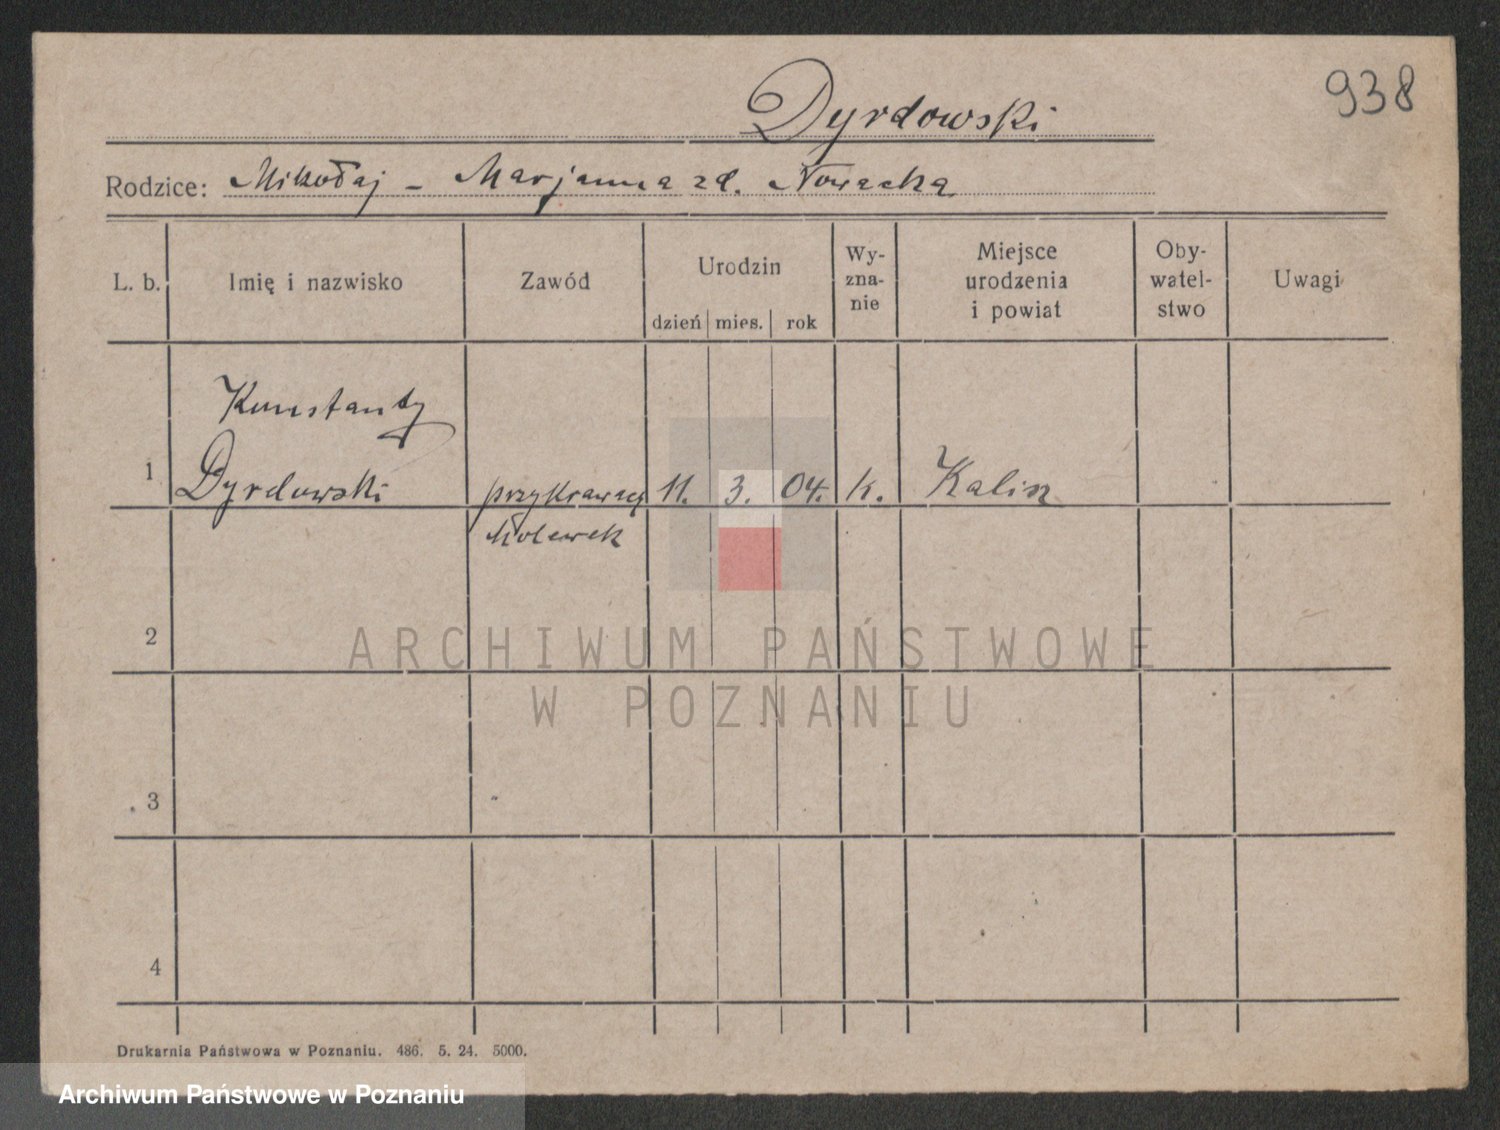 938
Dyrdowski
Rodzice: Mikołaj - Marjanna zd. Nowacka
L. b. Imię i nazwisko Zawód Urodzin dzień mies. rok Wy-zna-nie Miejsce urodzenia i powiat Oby-watel-stwo Uwagi
Konstanty
1 Dyrdowski 11. 3. 04. k. Kalisz
2
ARCHIWUM PAŃSTWOWE
W POZNANIU
3
4
Drukarnia Państwowa w Poznaniu. 486. 5. 24. 5000.
Archiwum Państwowe w Poznaniu